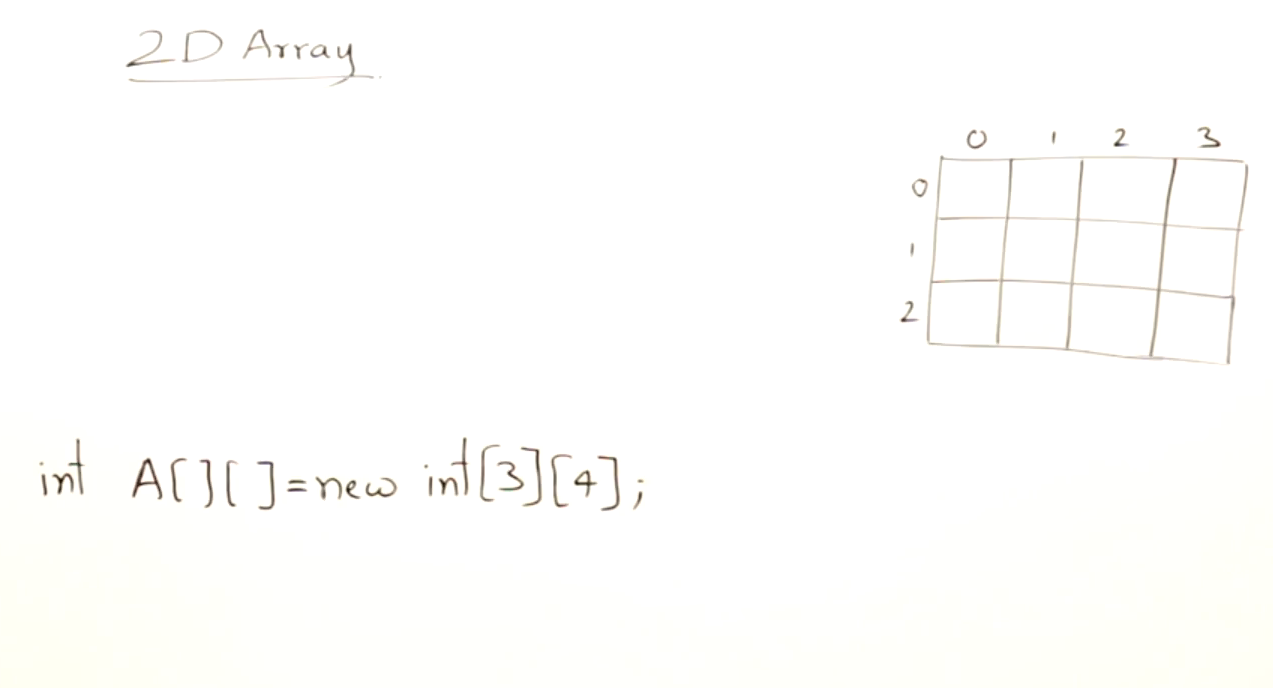 2D Array
0 1 2 3
0
1
2
int A[][]=new int[3][4];